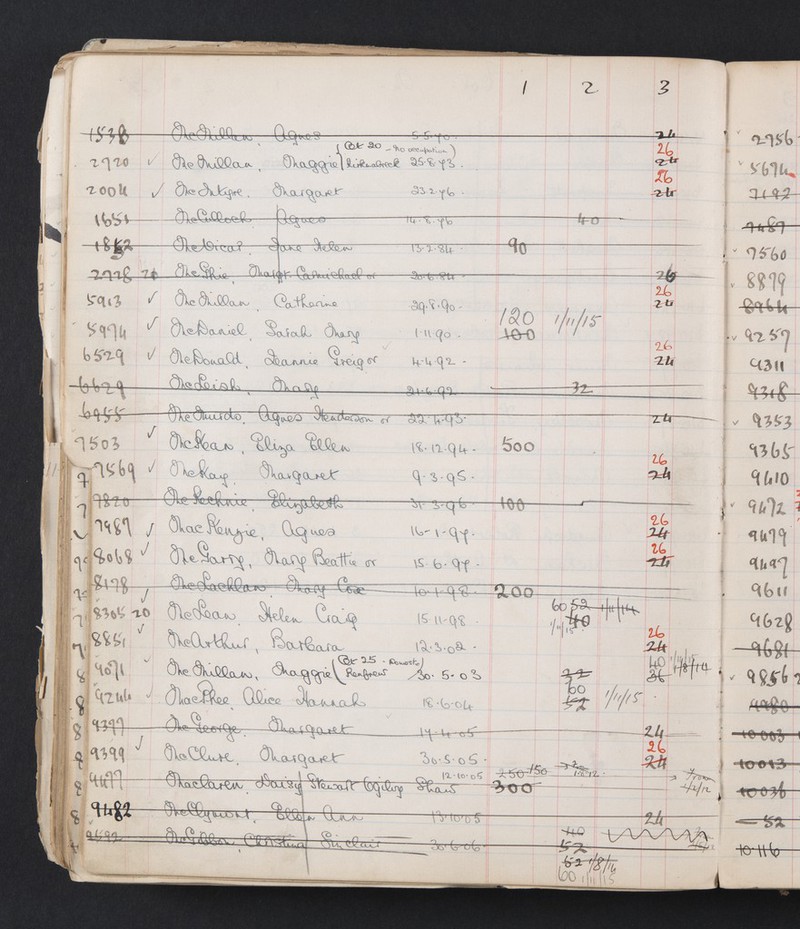 1 2 3
1538 McMillan, Agnes 5.5.70 24
(Cot 20 - no occupation) 26
2720 ✓ McMillan, Maggie (Kirkcubrick 25.8.73. 24
26
2004 ✓ McIntyre, Margaret 23.2.76. 24
1651 McCulloch Agnes 14.8.76 40
1852 McVicar, Jane Helen 13.2.84. 90
2778 McPhie, Margt Carmichael or 20.6.84 26
26
5913 ✓ McMillan, Catherine 29.8.90. 24
120 1/11/15
5974 ✓ McDaniel, Sarah Mary 1.11.90. 100
26
6529 ✓ McDonald, Jeannie Greig or 4.4.92. 24
6629 McLeish, Mary 21.6.92 32
6955 McMurdo, Agnes Henderson or 22.4.93. 24
7503 ✓ McKean, Eliza Ellen 18.12.94. 500
26
7569 ✓ McKay, Margaret 9.3.95. 24
7820 McKechnie, Elizabeth 31.3.96 100
26
7987 ✓ MacKenzie, Agnes 16-1-97. 24
26
8068 ✓ McGarry, Mary Beattie or 15.6.97. 24
8178 McLachlan, Mary Coxe 10.1.98. 200
60 52 1/11/14
8305 20 McLean, Helen Craig 15.11.98. 1/11/15 40
26
8851 ✓ McArthur, Barbara 12.3.02. 24
(Cot 25 - Domestic) 40 1/8/14
9071 McMillan, Maggie (Renfrew 30.5.03 32 36
60
9244 MacPhee, Alice Hannah 18.6.04 52 1/11/15
9397 McGeorge, Margaret 17.4.05 24
26
9399 ✓ McClure, Margaret 30.5.05. 24
12.10.05 250 150
9477 Maclaren, Daisy Stewart Ogilvy Shaw 300
9482 McClymont, Ellen Ann 13.10.05 24
40
9592 McGibbon, Christina Sinclair 30.6.06. 52
52 1/8/14
60 1/11/15
2756
5674
7192
7487
7560
8879
8964
9257
9311
9318
9353
9365
9410
9472
9479
9497
9611
9628
9681
9856
9980
10003
10013
10036
52
10116